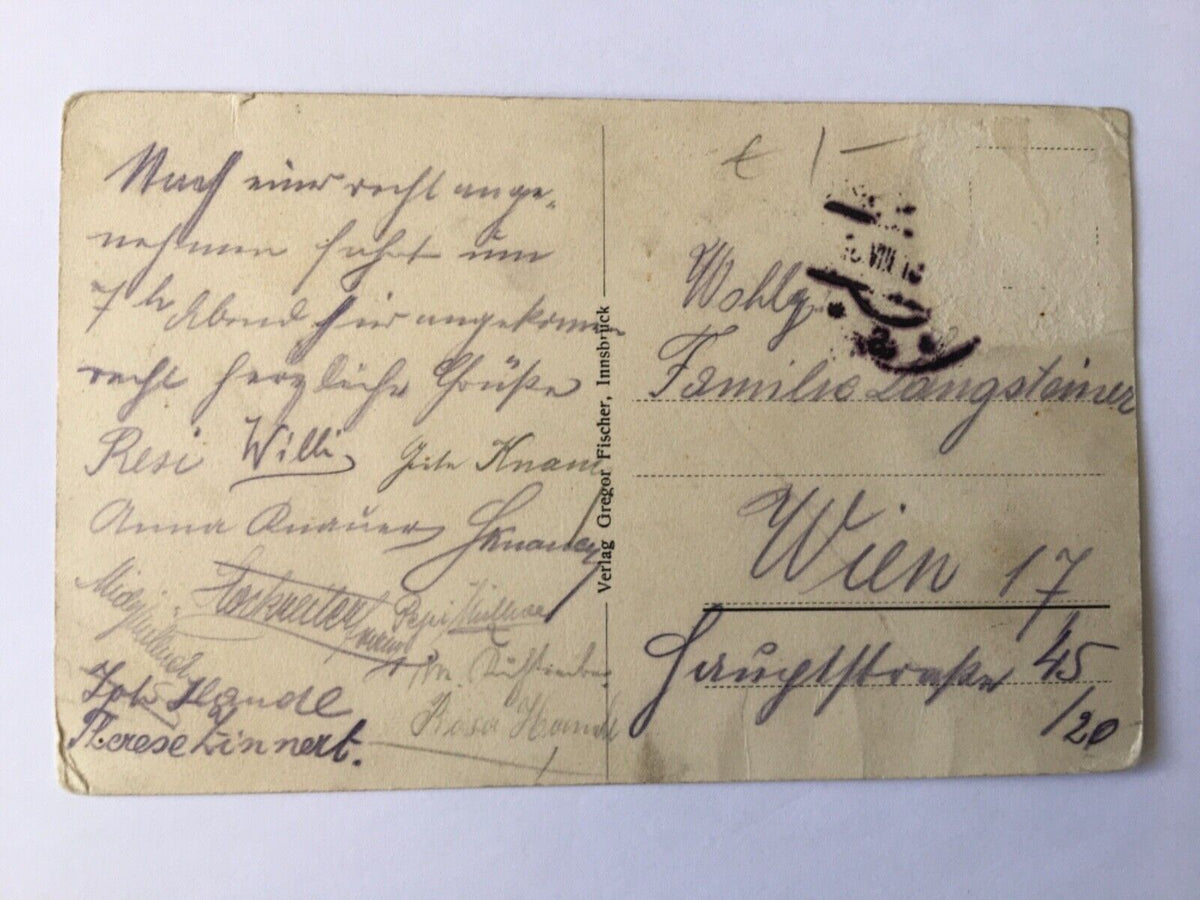 Nach einer recht ange-
nehmen Fahrt um
7 h Abend hier angekommen
recht herzliche Grüße
Resi Willi
Anna Knauer
Hochreiter
Pepi
Handl
Therese Zinnert.
Rosa Handl
Verlag Gregor Fischer, Innsbruck
£ 1 –
VIII
Wohlg.
Familie Langsteiner
Wien 17
Hauptstraße 45
/20